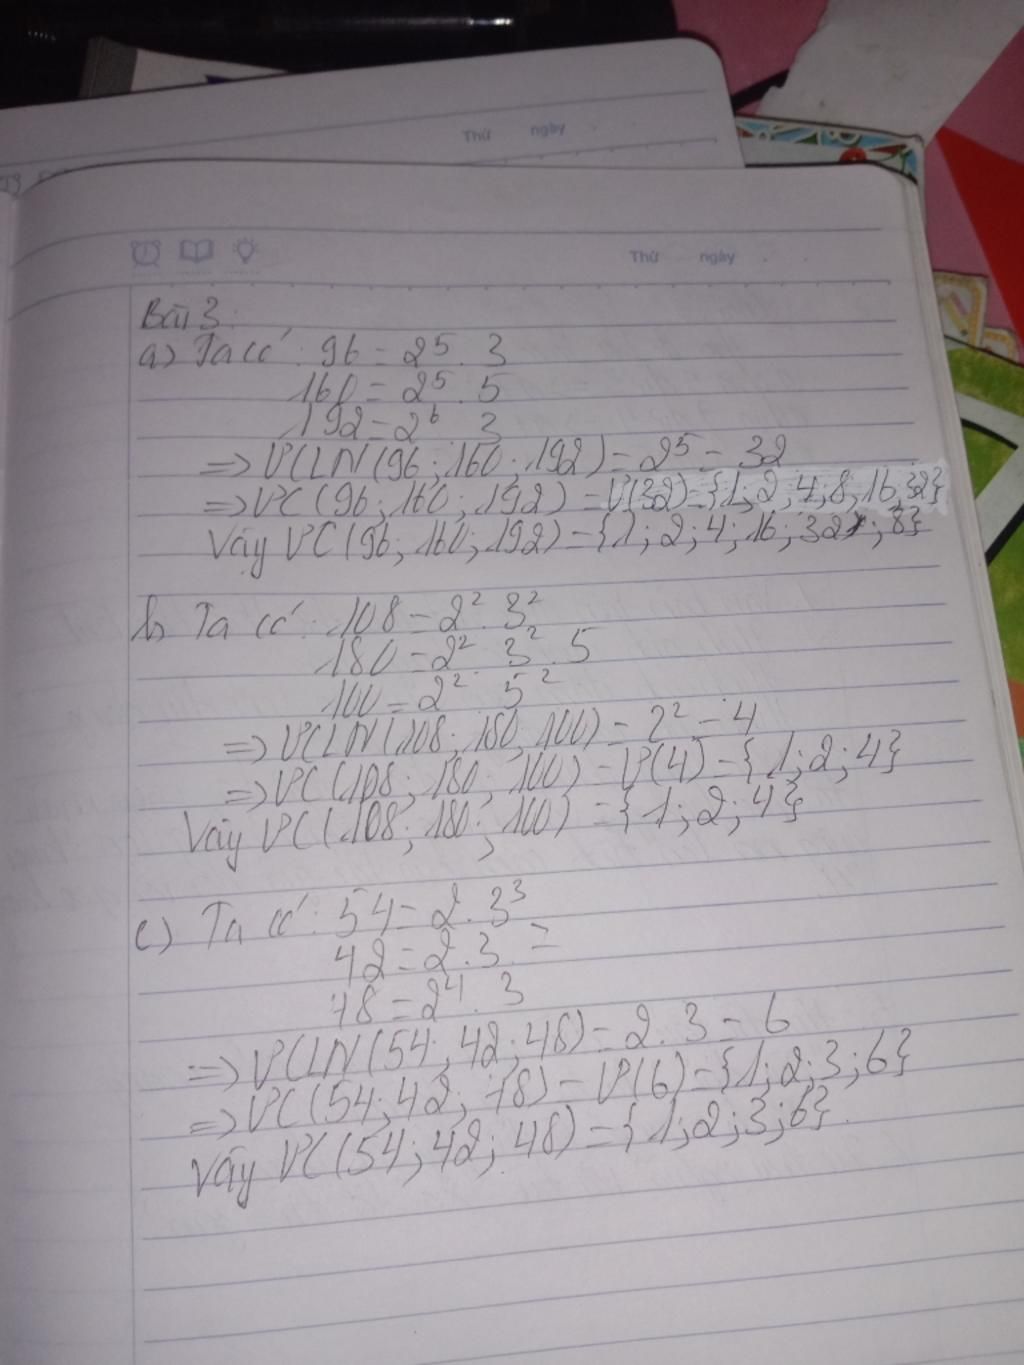 Thứ ngày
Thứ ngày
Bài 3:
a) Ta có: 96 = 2⁵. 3
160 = 2⁵. 5
192 = 2⁶ 3
=> ƯCLN(96; 160; 192) = 2⁵ = 32
=> ƯC(96; 160; 192) = Ư(32) = {1; 2; 4; 8; 16; 32}
Vậy ƯC(96; 160; 192) = {1; 2; 4; 16; 32; 8}
b, Ta có: 108 = 2². 3²
180 = 2² 3². 5
100 = 2² 5²
=> ƯCLN(108; 180; 100) = 2² = 4
=> ƯC(108; 180; 100) = Ư(4) = {1; 2; 4}
Vậy ƯC(108; 180; 100) = {1; 2; 4}
c) Ta có: 54 = 2. 3³
42 = 2. 3. 7
48 = 2⁴. 3
=> ƯCLN(54; 42; 48) = 2. 3 = 6
=> ƯC(54; 42; 48) = Ư(6) = {1; 2; 3; 6}
Vậy ƯC(54; 42; 48) = {1; 2; 3; 6}.